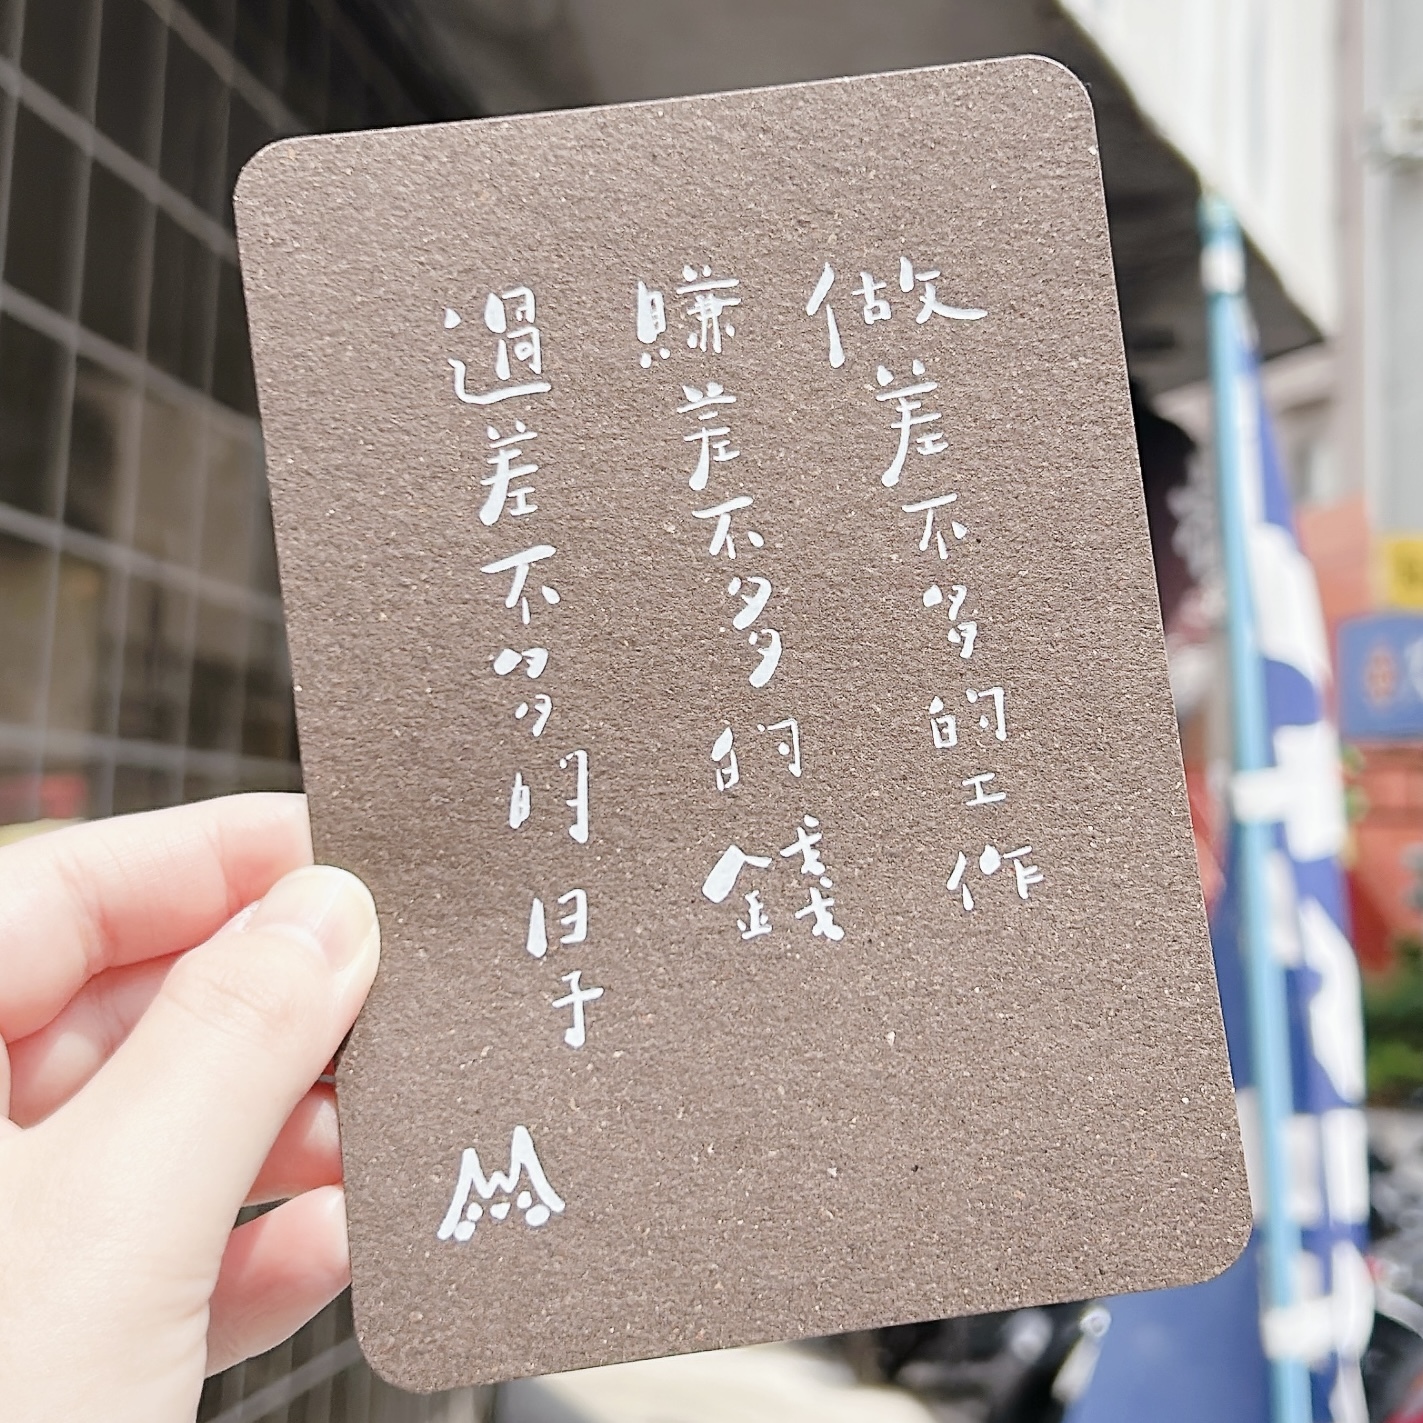 做差不多的工作
賺差不多的錢
過差不多的日子